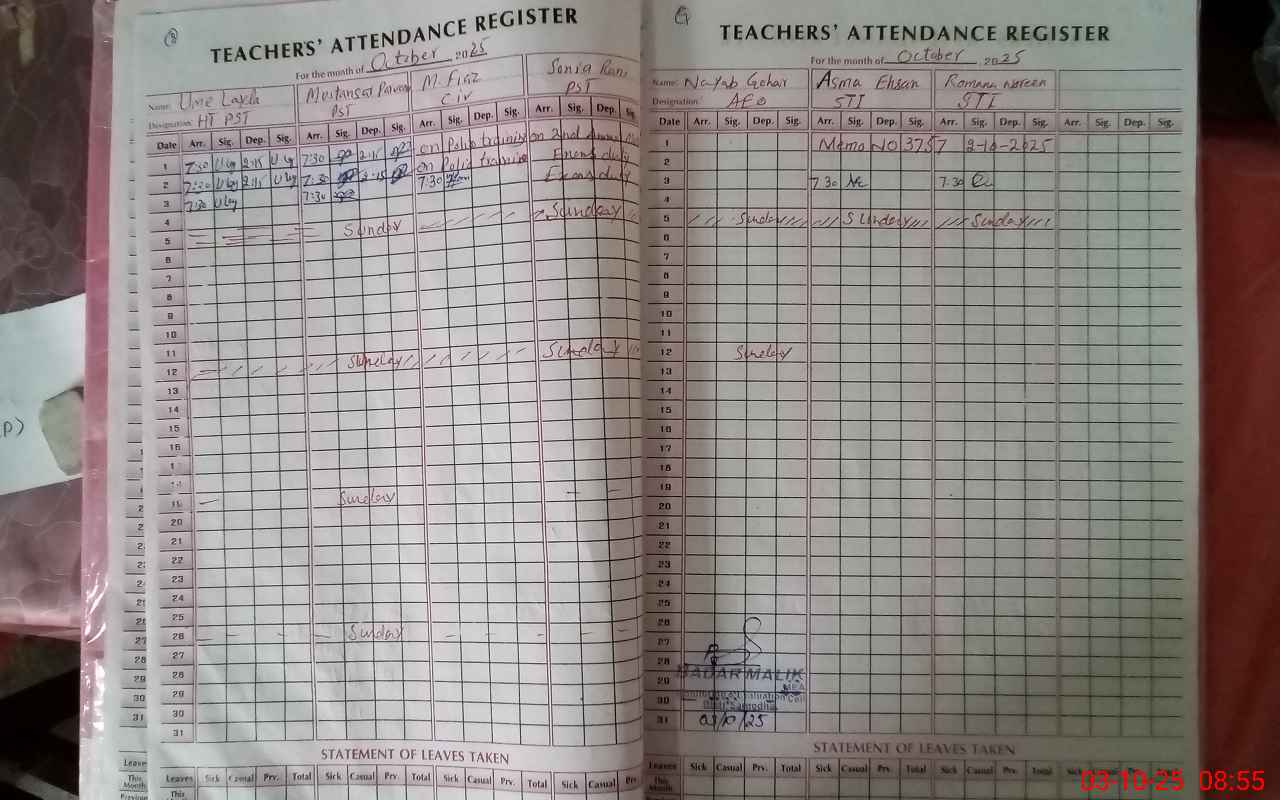 TEACHERS' ATTENDANCE REGISTER
For the month of October 2025
Name: Ume Laila M. Fiaz Sonia Rani
Designation: HT PST PST Civ PST
Date Arr. Sig. Dep. Sig. Arr. Sig. Dep. Sig. Arr. Sig. Dep. Sig. Arr. Sig.
1 7:30 2:15 7:30 2:15 on Polio training on 2nd
2 7:30 2:15 7:30 2:15 on Polio training Exams duty
3 7:30 7:30 7:30 Exams duty
4
5 Sunday Sunday
6
7
8
9
10
11
12 Sunday Sunday
13
14
15
16
19 Sunday
20
21
22
23
24
25
26 Sunday
27
28
29
30
31
STATEMENT OF LEAVES TAKEN
Leaves Sick Casual Prv. Total Sick Casual Prv. Total Sick Casual Prv. Total Sick Casual Prv.
This Month
TEACHERS' ATTENDANCE REGISTER
For the month of October 2025
Name: Nayab Gohar Asma Ehsan Romana Noreen
Designation: AEO STI STI
Date Arr. Sig. Dep. Sig. Arr. Sig. Dep. Sig. Arr. Sig. Dep. Sig. Arr. Sig. Dep. Sig.
1 Memo NO 3757 2-10-2025
2
3 7 30 7:30
4
5 Sunday Sunday Sunday
6
7
8
9
10
11
12 Sunday
13
14
15
16
17
18
19
20
21
22
23
24
25
26
27
28
29 BADAR MALIK
MEA
30
31 03/10/25
STATEMENT OF LEAVES TAKEN
Leaves Sick Casual Prv. Total Sick Casual Prv. Total Sick Casual Prv. Total Sick Casual Prv. Total
This Month
03-10-25 08:55